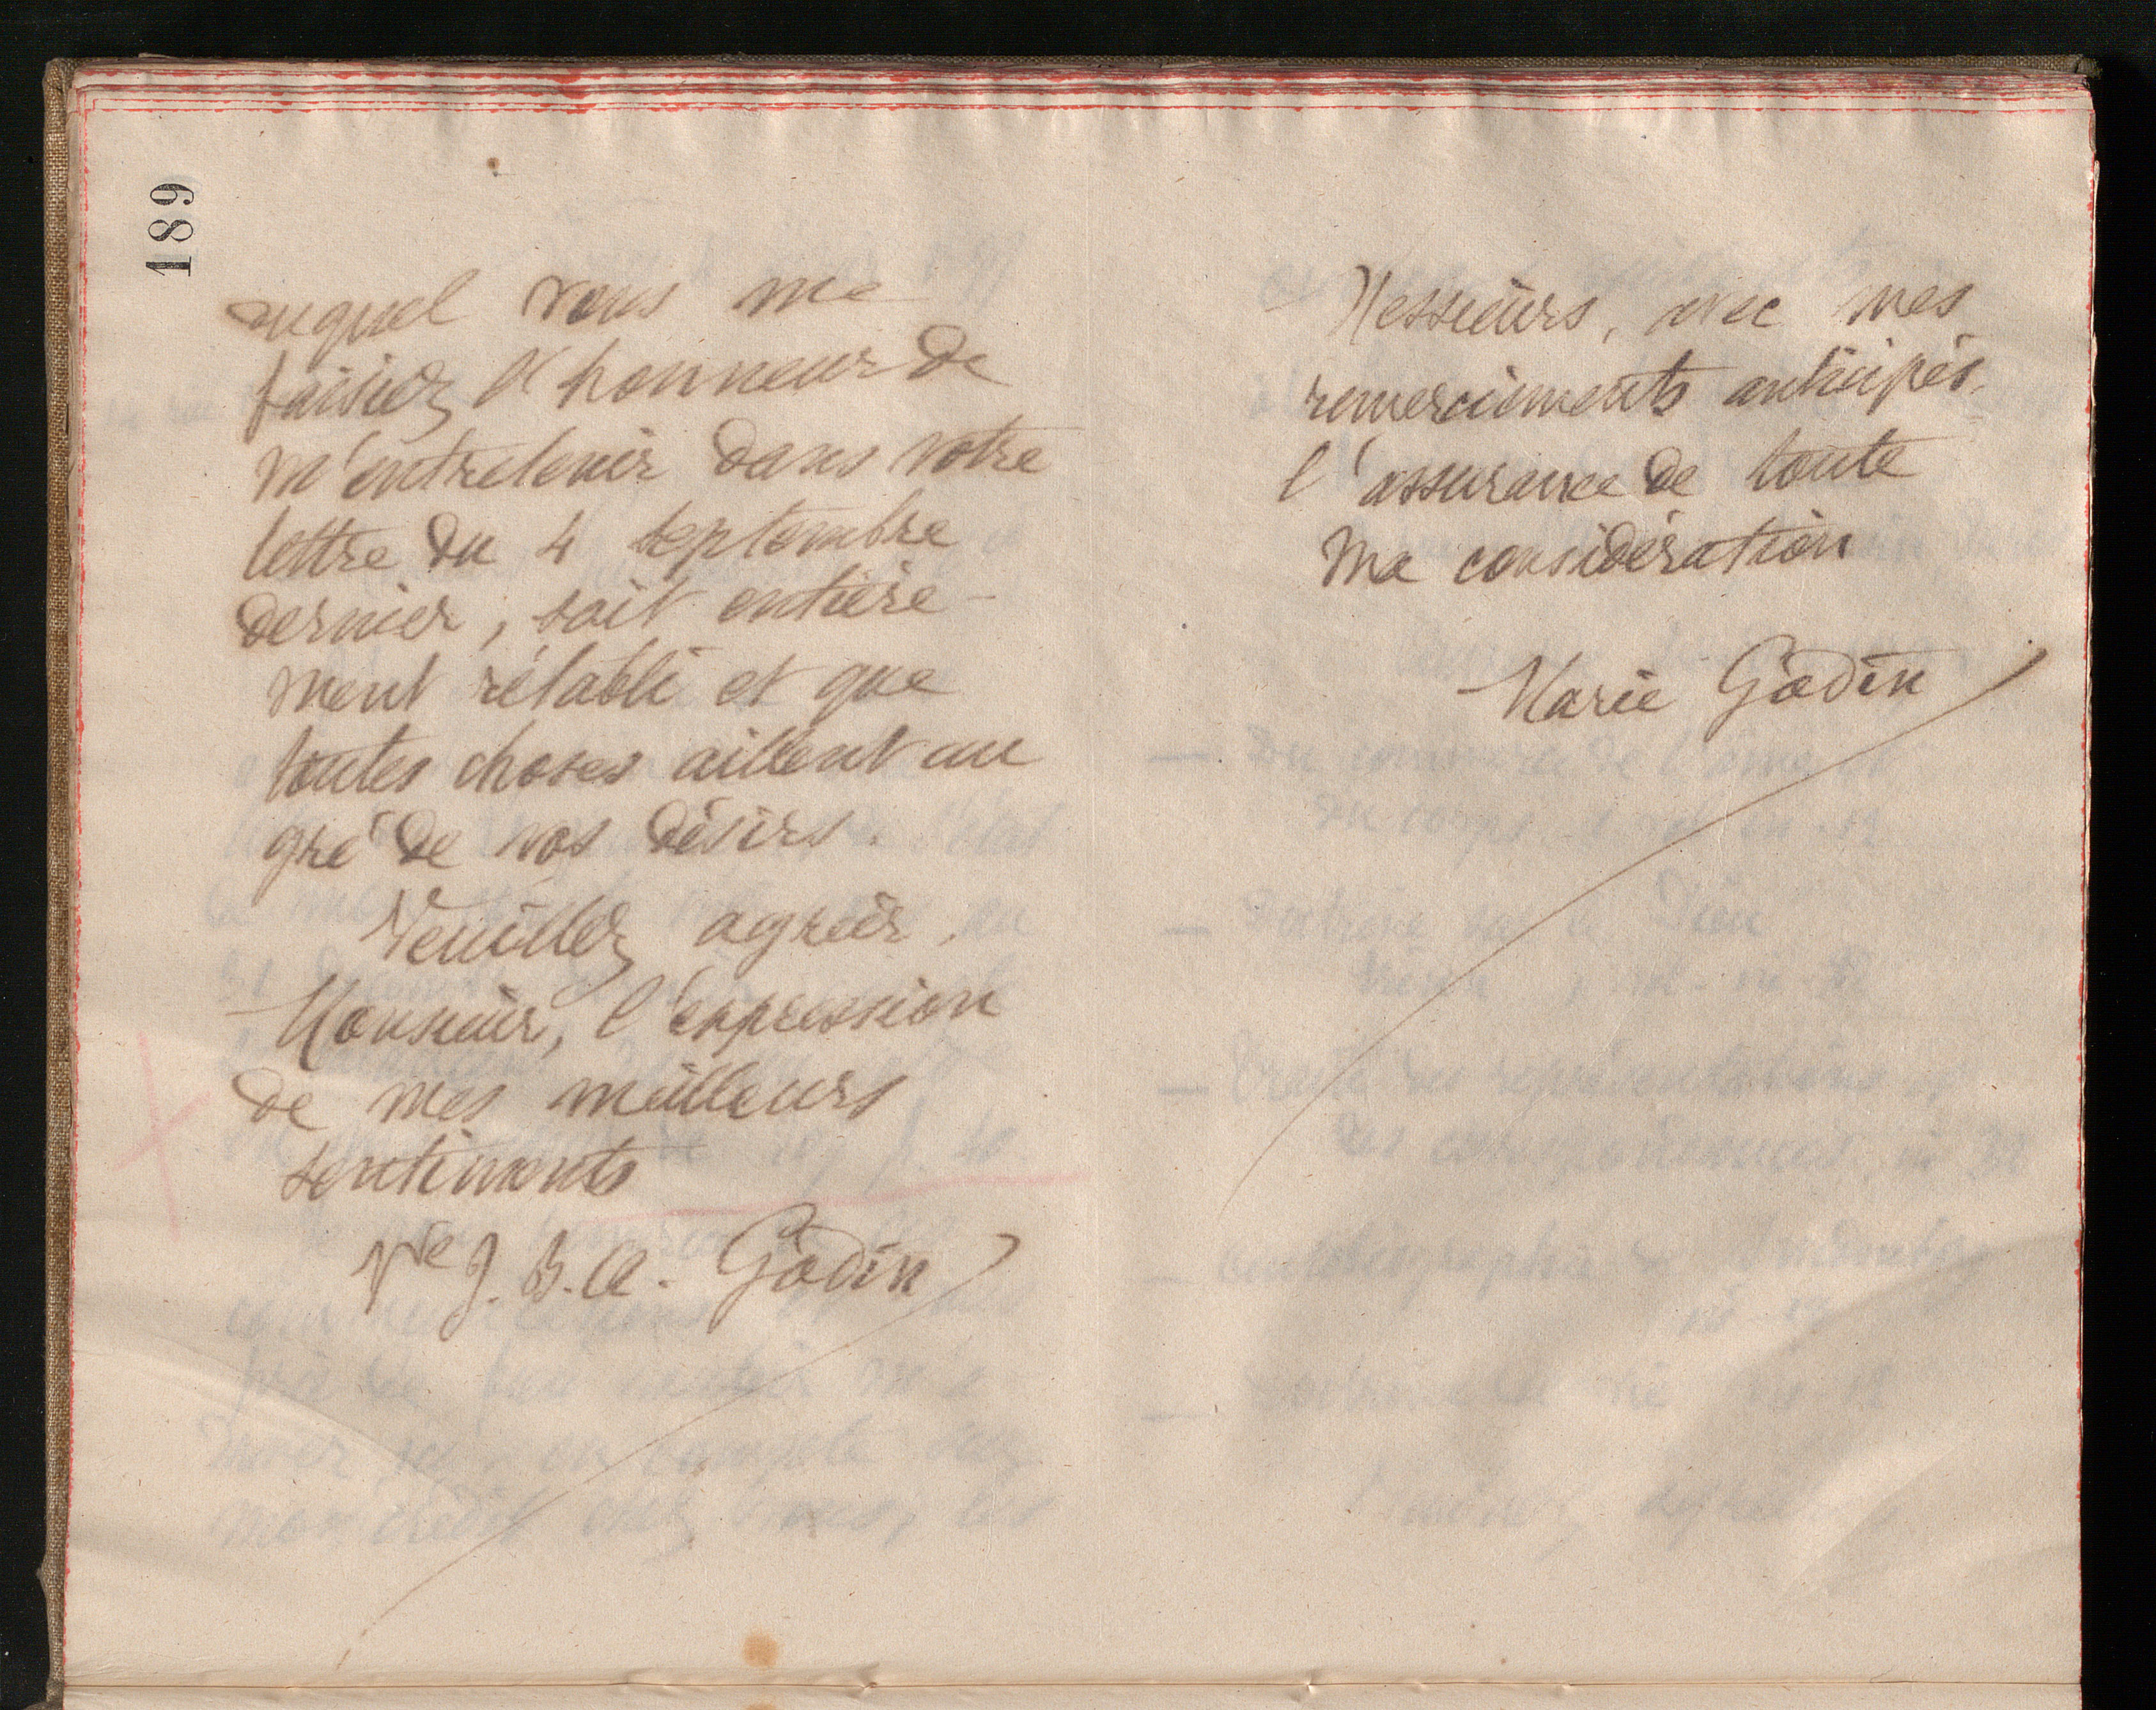 189
duquel vous me
faisiez l'honneur de
m'entretenir dans votre
lettre du 4 septembre
dernier, soit entière-
ment rétabli et que
toutes choses aillent au
gré de vos désirs.
Veuillez agréer,
Monsieur, l'expression
de mes meilleurs
sentiments
Vve J. B. A. Godin
Messieurs, avec mes
remerciements anticipés,
l'assurance de toute
ma considération
Marie Godin